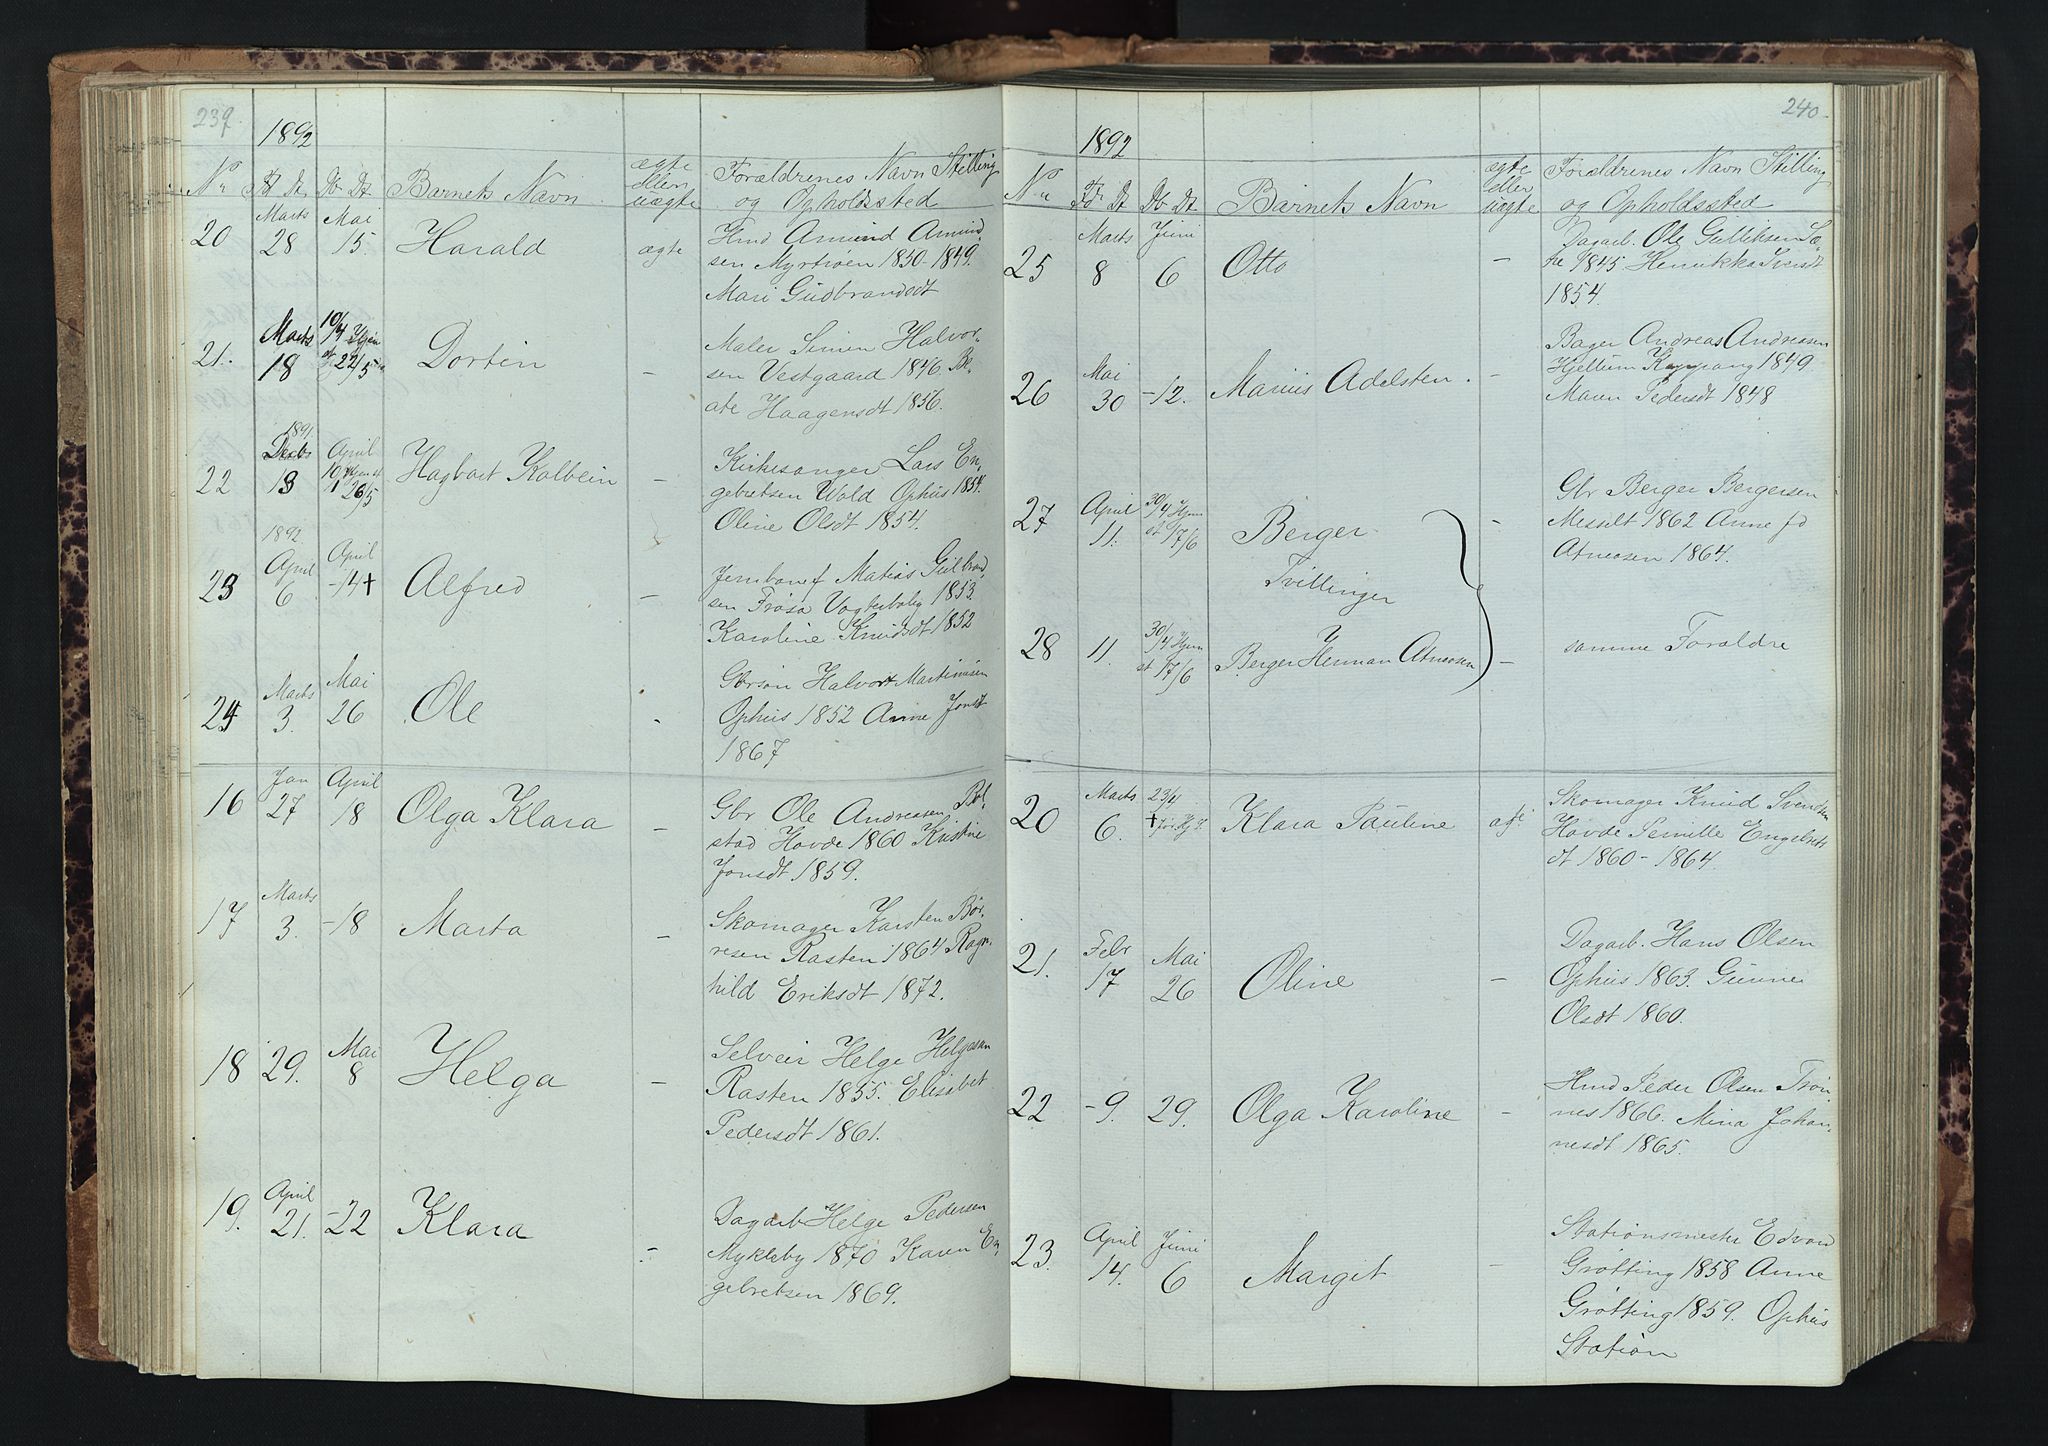 239.
1892
No Fd Dt Db Dt Barnets Navn ægte eller uægte Forældrenes Navn Stilling
og Opholdssted
20 Marts 28 Mai 15. Harald ægte Hmd Amund Amund-
sen Myrtroen 1850-1849.
Mari Gudbrandsdt
21. Marts 18 10/4 Hjem st 22/5 Dortin – Maler Simen Halvor-
sen Vestgaard 1846 Be-
ate Haagensdt 1856.
22 1891 Decbr 13 April 10 Hjem st 26/5 Hagbart Kolbein – Kirkesanger Lars En-
gebretsen Wold Ophus 1854.
Oline Olsdt 1854.
23 1892 April 6 April -14+ Alfred – Jernbanef Matias Gulbrand-
sen Frøsa Vogterbolig 1853.
Karoline Knudsdt 1852
24 Marts 3. Mai 26 Ole - Gbrsøn Halvor Martinusen
Ophus 1852 Anne Jonsdt
1867
16 Jan 27 April 18 Olga Klara – Gbr Ole Andreasen Bol-
stad Hovde 1860 Kristine
Jonsdt 1859.
17 Marts 3. -18 Marta – Skomager Karsten Bør-
resen Rasten 1864 Ragn-
hild Eriksdt 1872.
18 29. Mai 8 Helga – Selveier Helge Helgesen
Rasten 1855. Elisabet
Pedersdt 1861.
19. April 21. -22 Klara – Dagarb Helge Pedersen
Mykleby 1870 Karen En-
gebretsen 1869.
240.
1892
No Fd Dt Db Dt Barnets Navn ægte eller uægte Forældrenes Navn Stilling
og Opholdssted
25 Marts 8 Juni 6 Otto – Dagarb. Ole Gulliksen Sæ-
tre 1845 Henrikka Iversdt
1854.
26 Mai 30 -12. Marius Adelsten. – Bager Andreas Andreasen
Hjellum Koppang 1849
Maren Pedersdt 1848
27 April 11. 30/4 Hjem st 17/6 Berger - Gbr Berger Bergersen
Messelt 1862 Anne fd
Atneosen 1864.
Tvillinger
28 11. 30/4 Hjem st 17/6 Berger Herman Atneosen – samme Foraldre
20 Marts 6. 23/4 + Klara Pauline ægt. Skomager Knud Svendsen
Hovde Pernille Engebrets
dt 1860-1864.
21. Febr 17 Mai 26 Oline – Dagarb. Hans Olsen
Ophus 1863. Gunine
Olsdt 1860.
22 -9. 29. Olga Karoline – Hmd Peder Olsen Trøn-
nes 1866. Mina Johan-
nesdt 1865.
23. April 14. Juni 6 Margit – Stationsmester Edvard
Grøtting 1858 Anne
Grøtting 1859. Ophus
Station